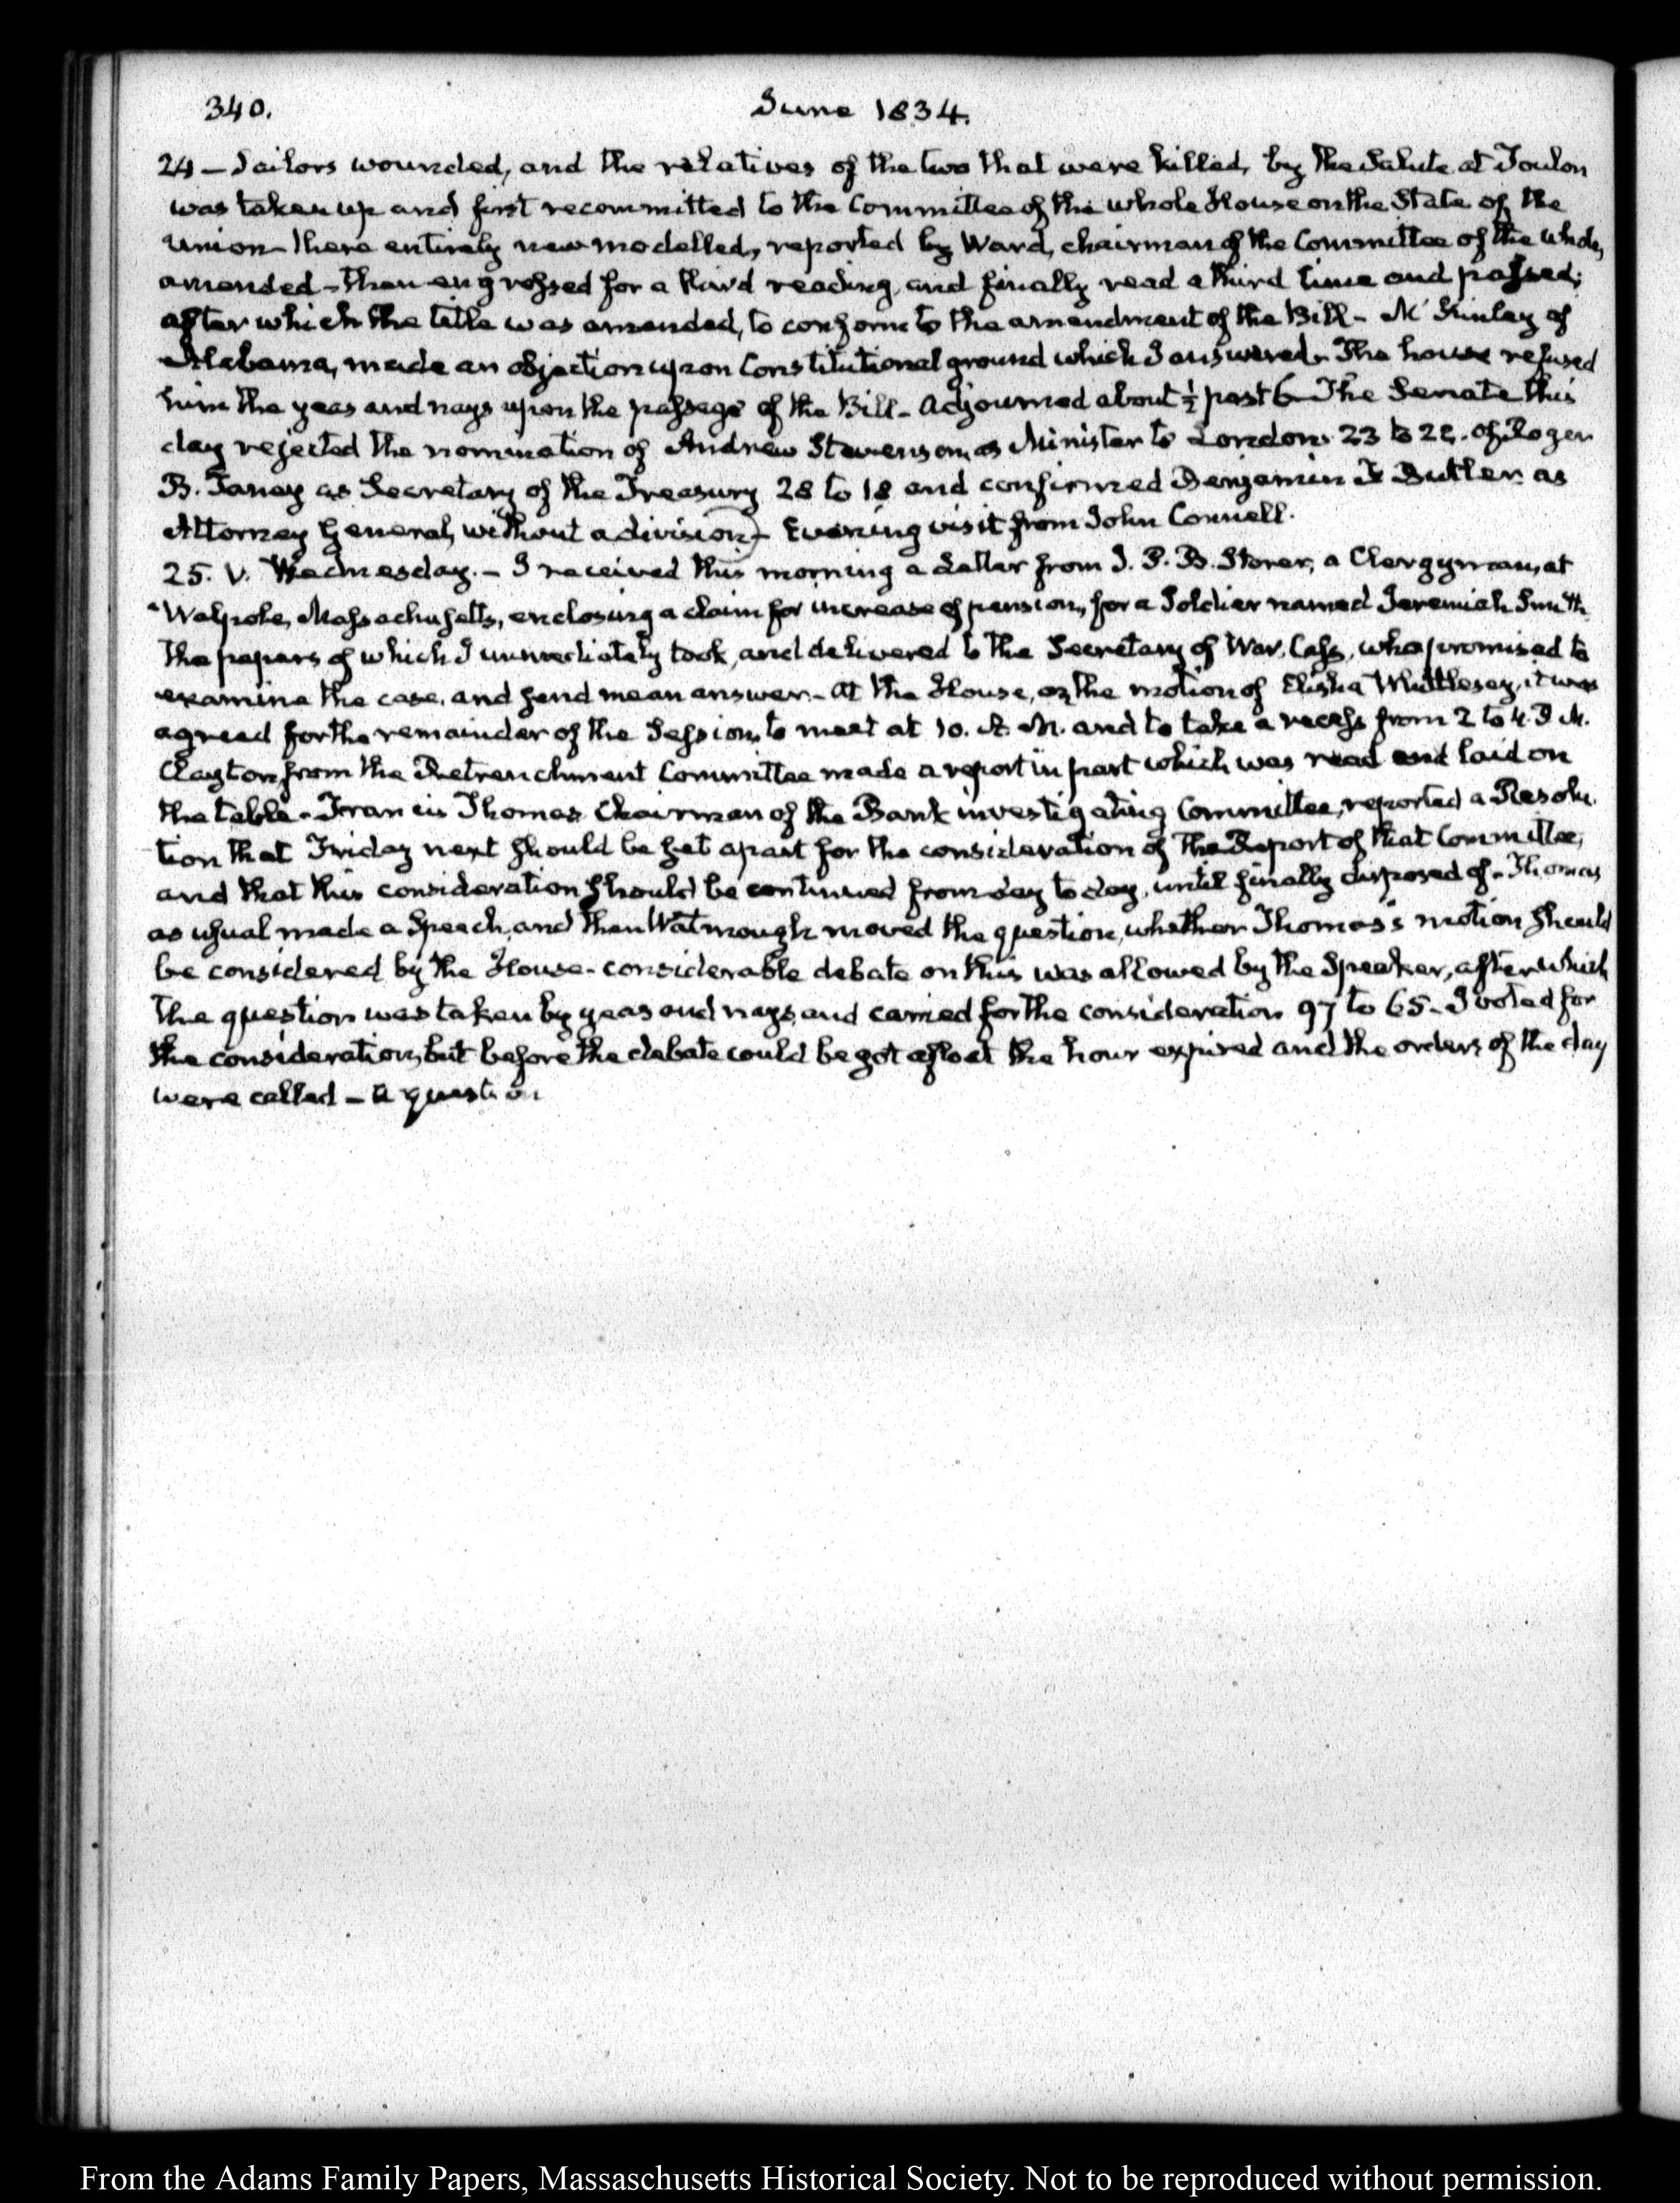 340.
June 1834.
24 — Sailors wounded, and the relatives of the two that were killed, by the Salute at Toulon
was taken up and first recommitted to the Committee of the whole House on the State of the
Union – there entirely new modelled, reported by Ward, chairman of the Committee of the whole,
amended – then engrossed for a third reading, and finally read a third time and passed;
after which the title was amended, to conform to the amendment of the Bill – McKinley of
Alabama, made an objection upon Constitutional ground which I answered – The house refused
him the yeas and nays upon the passage of the Bill – Adjourned about ½ past 6 – The Senate this
day rejected the nomination of Andrew Stevenson, as Minister to London 23 to 22. of Roger
B. Taney as Secretary of the Treasury 28 to 18 and confirmed Benjamin F Butler as
Attorney General, without a division – Evening visit from John Connell.
25. V. Wednesday. – I received this morning a Letter from J. P. B. Storer, a Clergyman, at
Walpole, Massachusetts, enclosing a claim for increase of pension, for a Soldier named Jeremiah Smith
the papers of which I immediately took, and delivered to the Secretary of War, Cass, who promised to
examine the case, and send me an answer – At the House, on the motion of Elisha Whittlesey, it was
agreed for the remainder of the Session, to meet at 10. A. M. and to take a recess from 2 to 4. P. M.
Clayton, from the Retrenchment Committee made a report in part which was read and laid on
the table – Francis Thomas Chairman of the Bank investigating Committee, reported a Resolu
tion that Friday next should be set apart for the consideration of the Report of that Committee,
and that this consideration should be continued from day to day, until finally disposed of – Thomas
as usual made a Speech, and then Watmough moved the question, whether Thomas's motion should
be considered by the House – considerable debate on this was allowed by the Speaker, after which
the question was taken by yeas and nays, and carried for the consideration 97 to 65 – I voted for
the consideration, but before the debate could be got afloat the hour expired and the orders of the day
were called – a question
From the Adams Family Papers, Massaschusetts Historical Society. Not to be reproduced without permission.